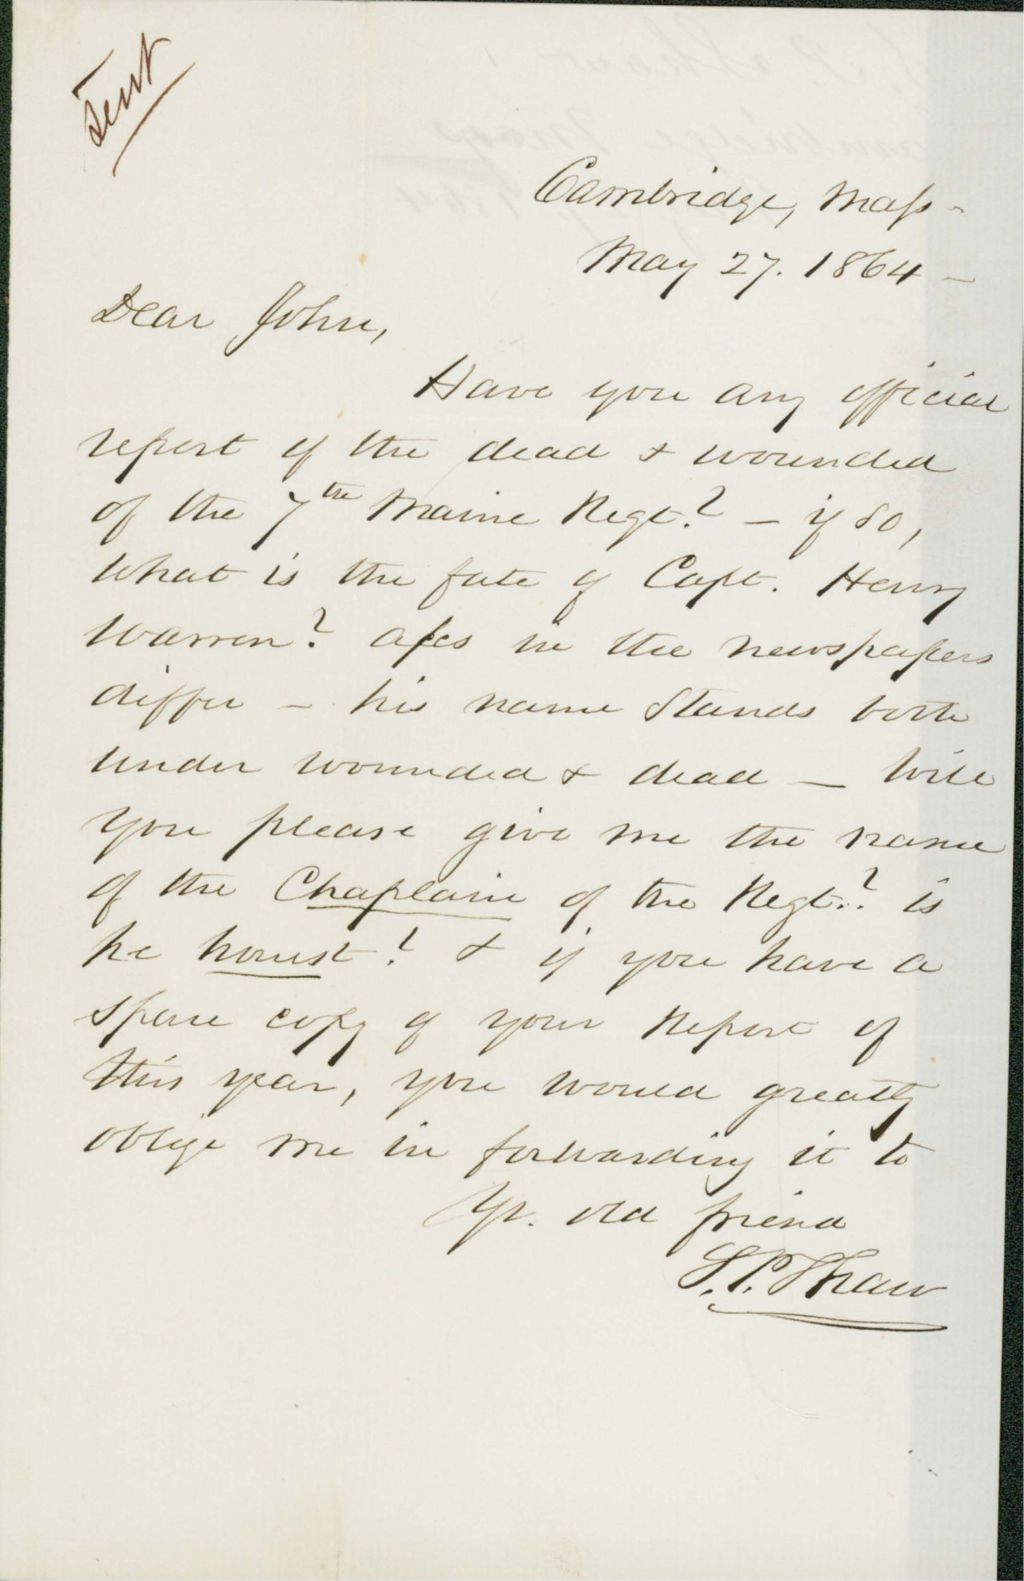 Sent
Cambridge, Mass -
May 27. 1864 -
Dear John,
Have you any official
report of the dead & wounded
of the 7th Maine Regt.? - if so,
what is the fate of Capt. Henry
Warren? a/cs in the newspapers
differ - his name stands both
under wounded & dead - Will
you please give me the name
of the Chaplain of the Regt.? is
he honest? & if you have a
spare copy of your Report of
this year, you would greatly
oblige me in forwarding it to
Yr. old friend
S.P. Shaw